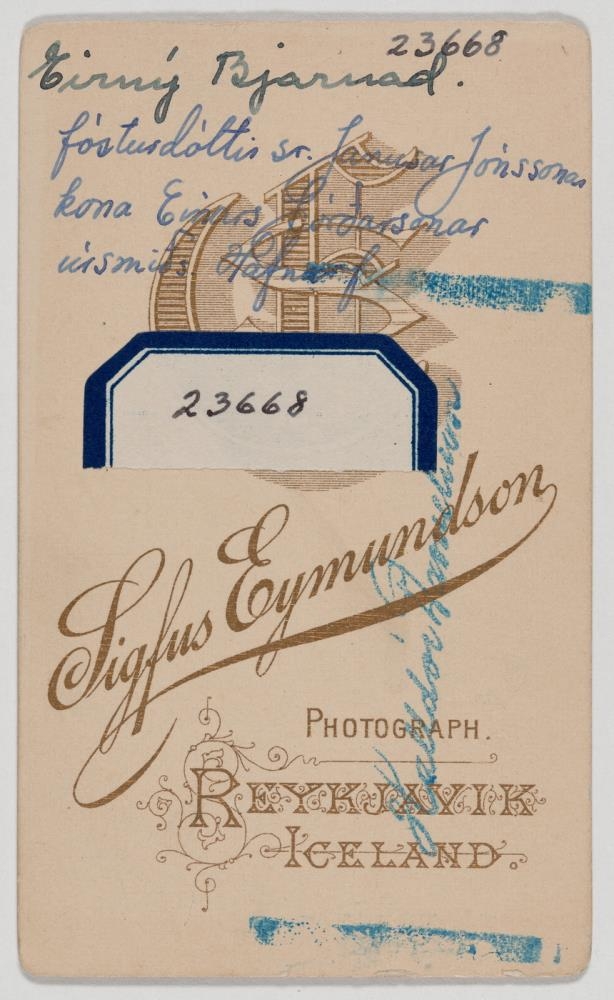 23668
Eirný Bjarnad.
fósturdóttir sr. Janusar Jónssonar
kona Einars Þórðarsonar
úrsmiðs Hafnarf.
23668
Sigfus Eymundson
PHOTOGRAPH.
REYKJAVIK
ICELAND.
Halldór